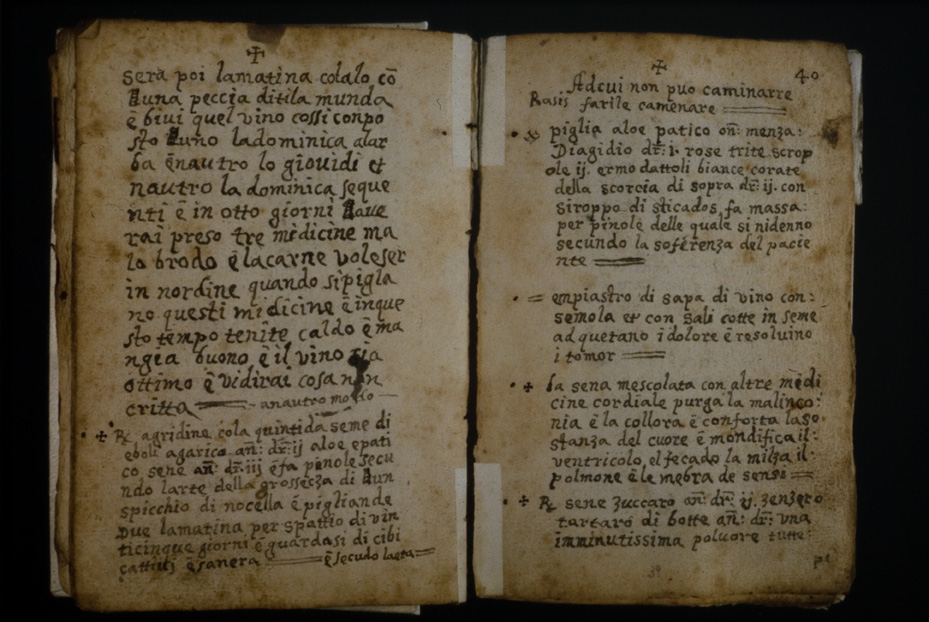 ✠
sera poi lamatina colalo cō
una peccia ditila munda
ē bivi quel vino cossi conpo
sto uno ladominica alar
ba ēnautro lo giovidi et
nautro la dominica seque
nti ē in otto giorni
rai preso tre midicine ma
lo brodo ēlacarne voleser
in nordine quando sipigla
no questi midicine ēinque
sto tempo tenite caldo ēma
ngia buono ē il vino sia
ottimo ē vidirai cosa non
critta anautro modo
✠ ℞ agridine cola quintida seme di
eboli agarico añ: dr̄: ij aloe epati
co sene añ: dr̄: iij ēfa pinole secu
ndo larte della grossezza di un
spicchio di nocella ē pigliande
Due lamatina per spattio di vin
ticinque giorni ē guardasi di cibi
cattivi ēsanera ēsecudo laeta
✠
40
Adcui non puo caminarre
Rasis farile camenare
piglia aloe patico on̄: menza:
Diagidio dr̄: i· rose trite scrop
ole ij. ermodattoli biance corate
della scorcia di sopra dr̄: ij. con
siroppo di sticados fa massa:
per pinole delle quale si nidenno
secundo la soferenza del pacie
nte
= empiastro di sapa di vino con:
semola et con sali cotte in seme
adquetano i dolore ē resoluino
i tomor
✠ la sena mescolata con altre medi
cine cordiale purga la malinco:
nia ē la collora ē conforta laso
stanza del cuore ē mondifica il:
ventricolo, el fecado la milza il:
polmone ē le mebra de sensi
✠ ℞ sene zuccaro añ: dr̄: ij. zenzero
tartaro di botte añ: dr̄: una
imminutissima polvore tutte: